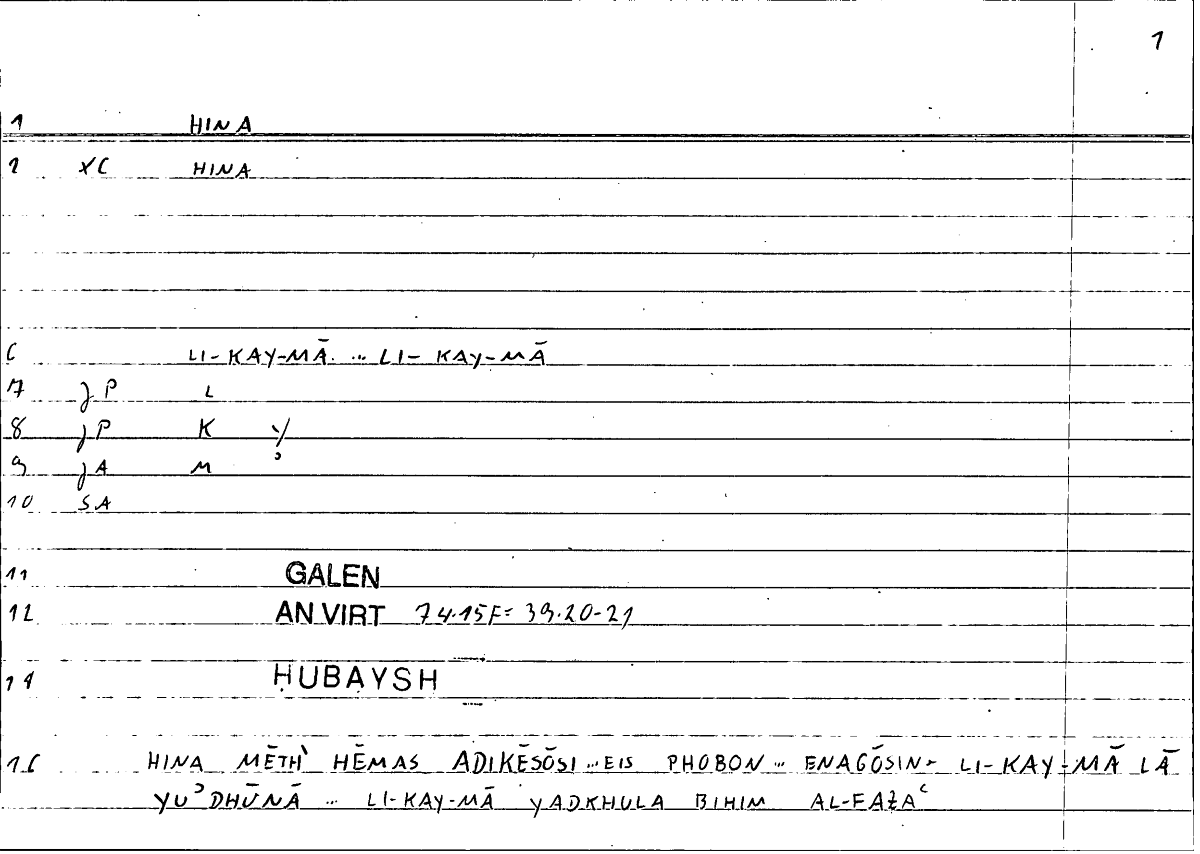 1
1 HINA
1 XC HINA
6 LI-KAY-MĀ ... LI-KAY-MĀ
7 JP L
8 JP K Y
9 JA M
10 SA
11 GALEN
12 AN VIRT 74.15F = 39.20-21
14 ḤUBAYSH
16 HINA MĒTH' HĒMAS ADIKĒSŌSI ... EIS PHOBON ... ENAGŌSIN - LI-KAY-MĀ LĀ
YUʾDHŪNĀ ... LI-KAY-MĀ YADKHULA BIHIM AL-FAZAʿ